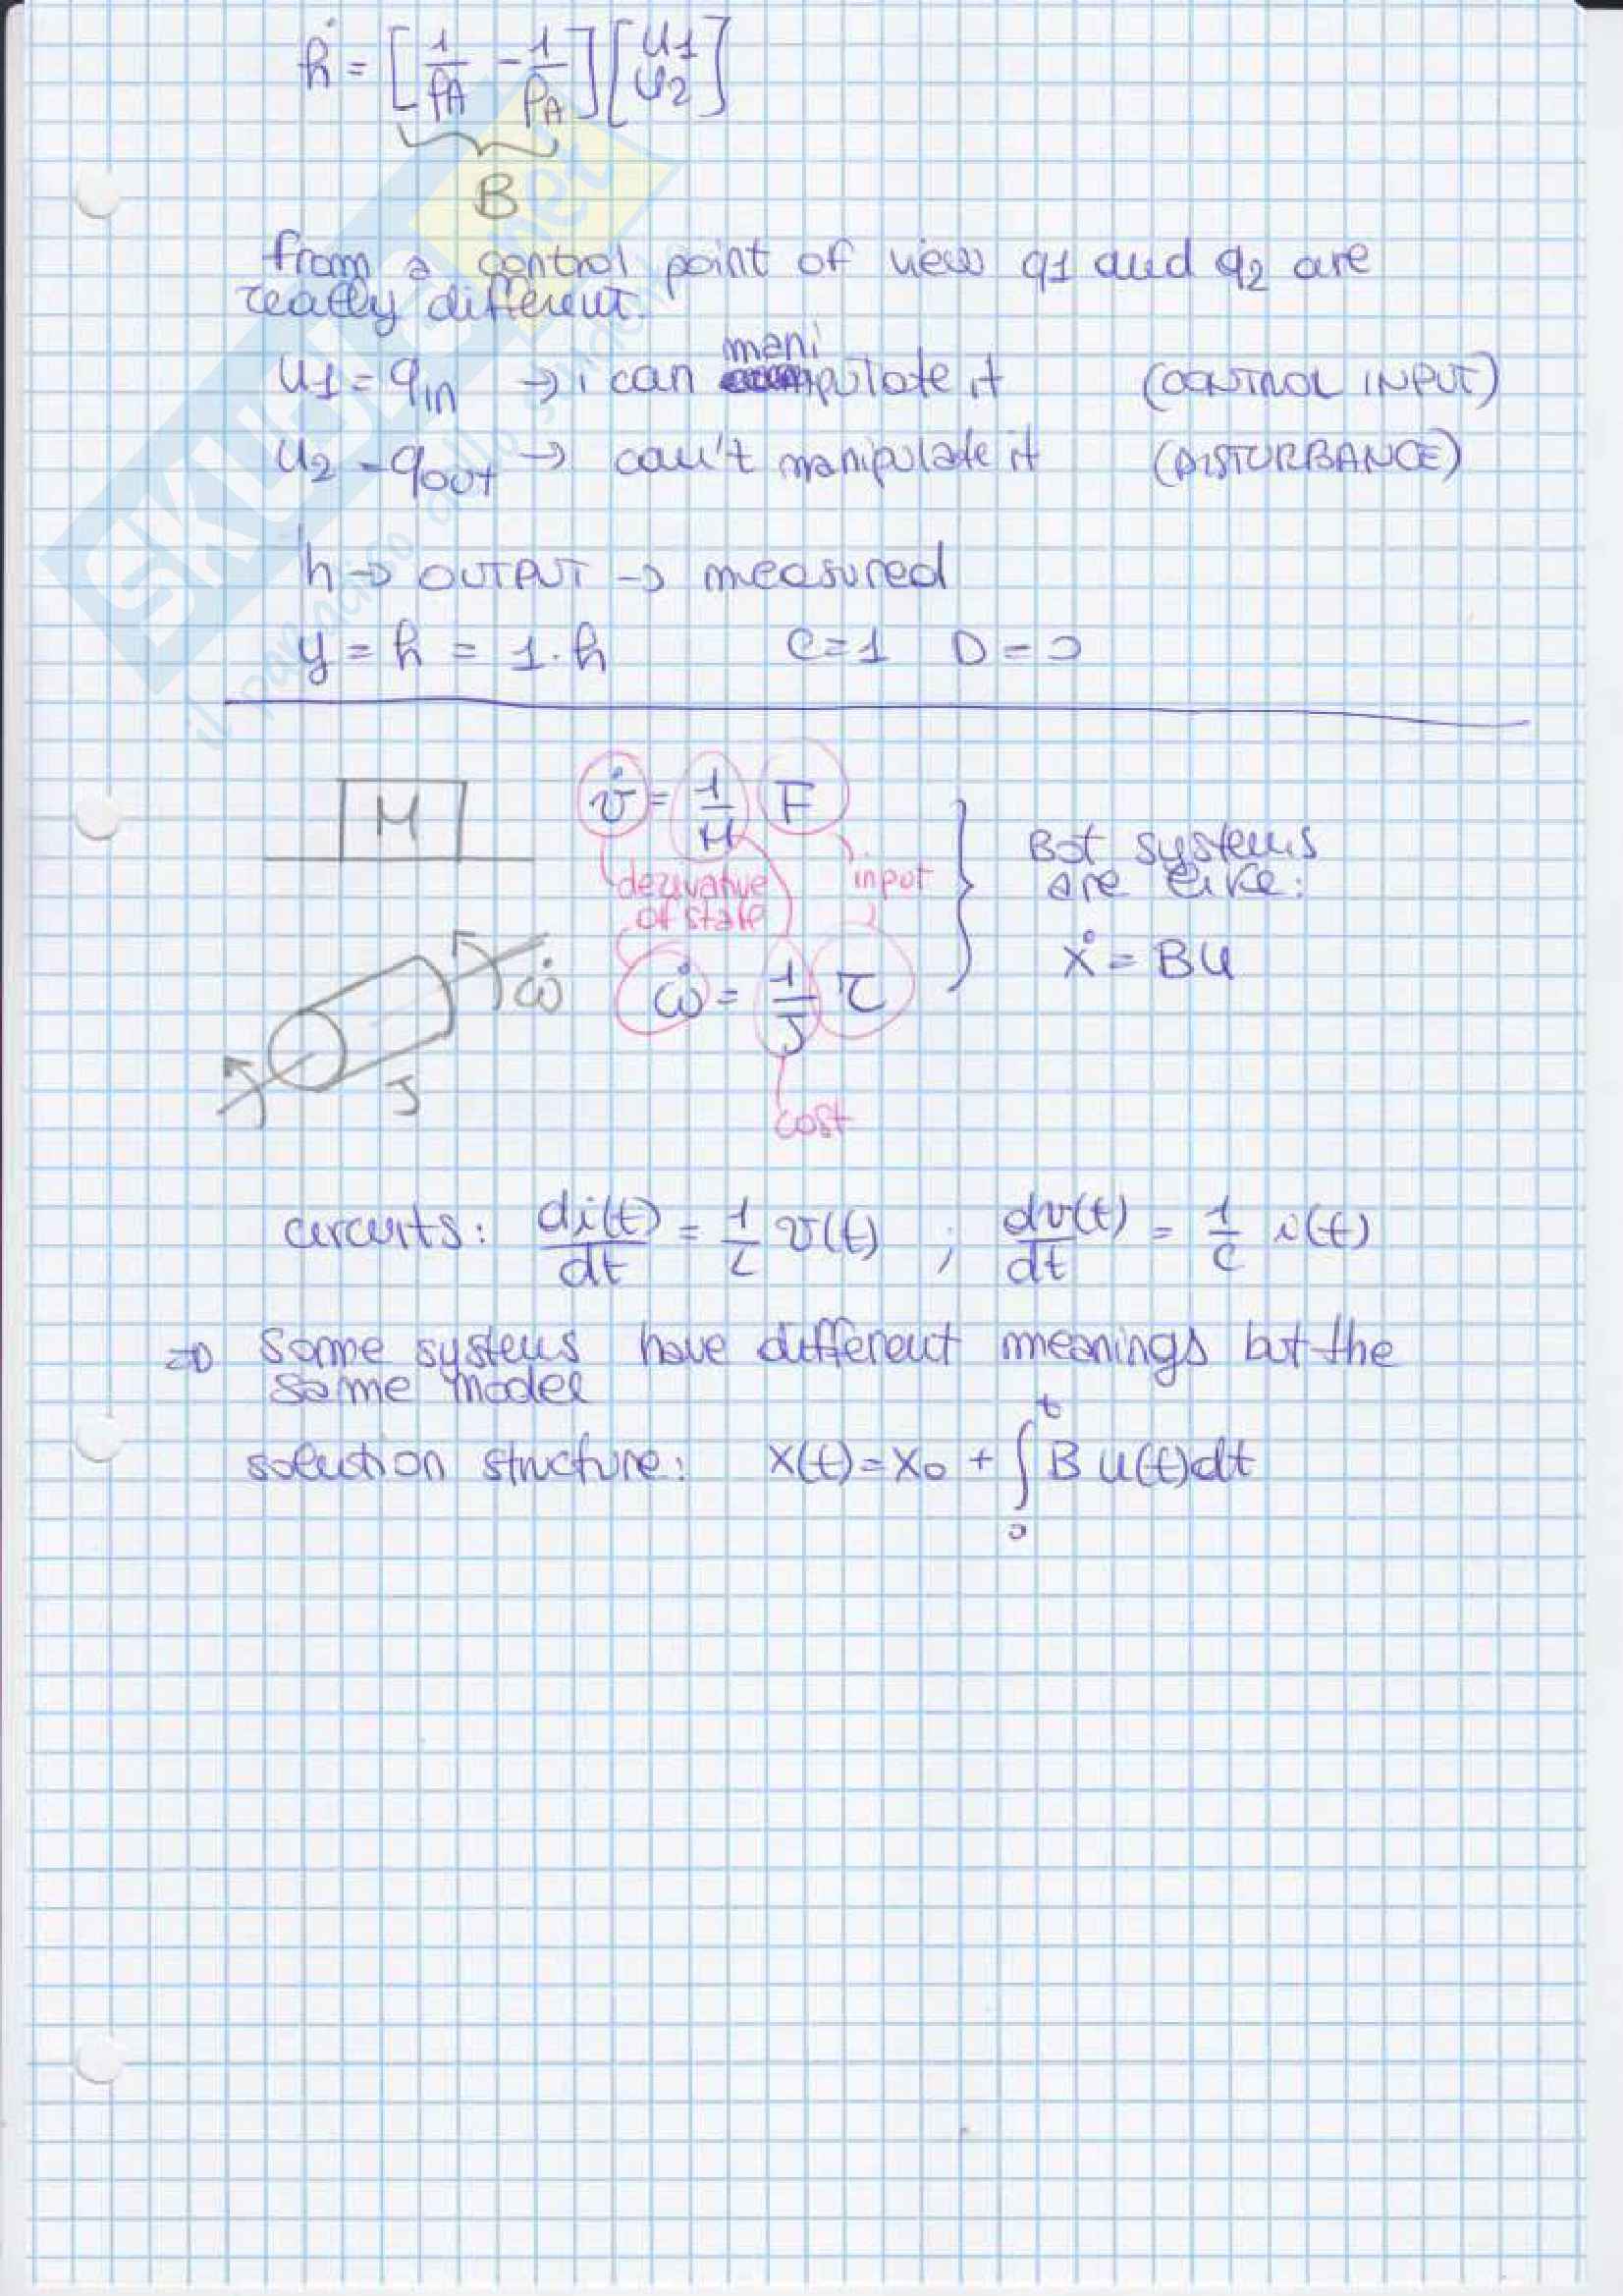 ḣ = [1/ρA -1/ρA] [u1 u2]
B
from a control point of view q1 and q2 are
really different.
u1 = qin → i can manipulate it (CONTROL INPUT)
u2 = qout → can't manipulate it (DISTURBANCE)
h → OUTPUT → measured
y = h = 1·h C=1 D=0
M
v̇ = 1/M F
derivative
of state
input
Bot systems
are like:
ẋ = Bu
ω̇
ω̇ = 1/J τ
J
cost
circuits: di(t)/dt = 1/L v(t) ; dv(t)/dt = 1/C i(t)
⇒ Some systems have different meanings but the
same model
solution structure: x(t) = x0 + ∫₀ᵗ B u(t)dt
SKUOLA.net